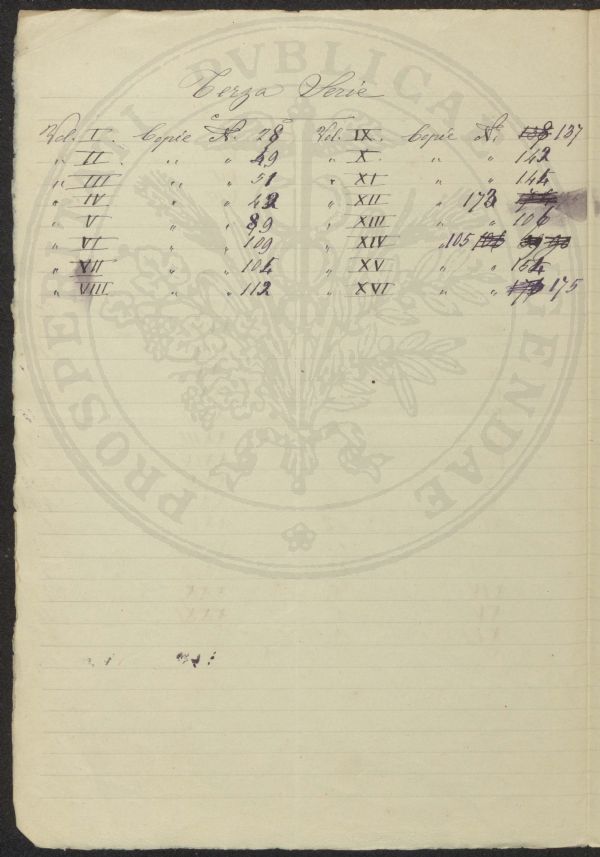 Terza Serie
Vol. I. Copie N. 28 Vol. IX. Copie N. 138 137
„ II. „ „ 49 „ X. „ „ 142
„ III „ „ 51 „ XI „ „ 144
„ IV „ „ 42 „ XII „ 172
„ V „ „ 89 „ XIII „ „ 106
„ VI „ „ 109 „ XIV „ 105
„ VII „ „ 104 „ XV „ „ 154
„ VIII „ „ 112 „ XVI „ „ 175
PROSPERITATI PVBLICAE AVGENDAE